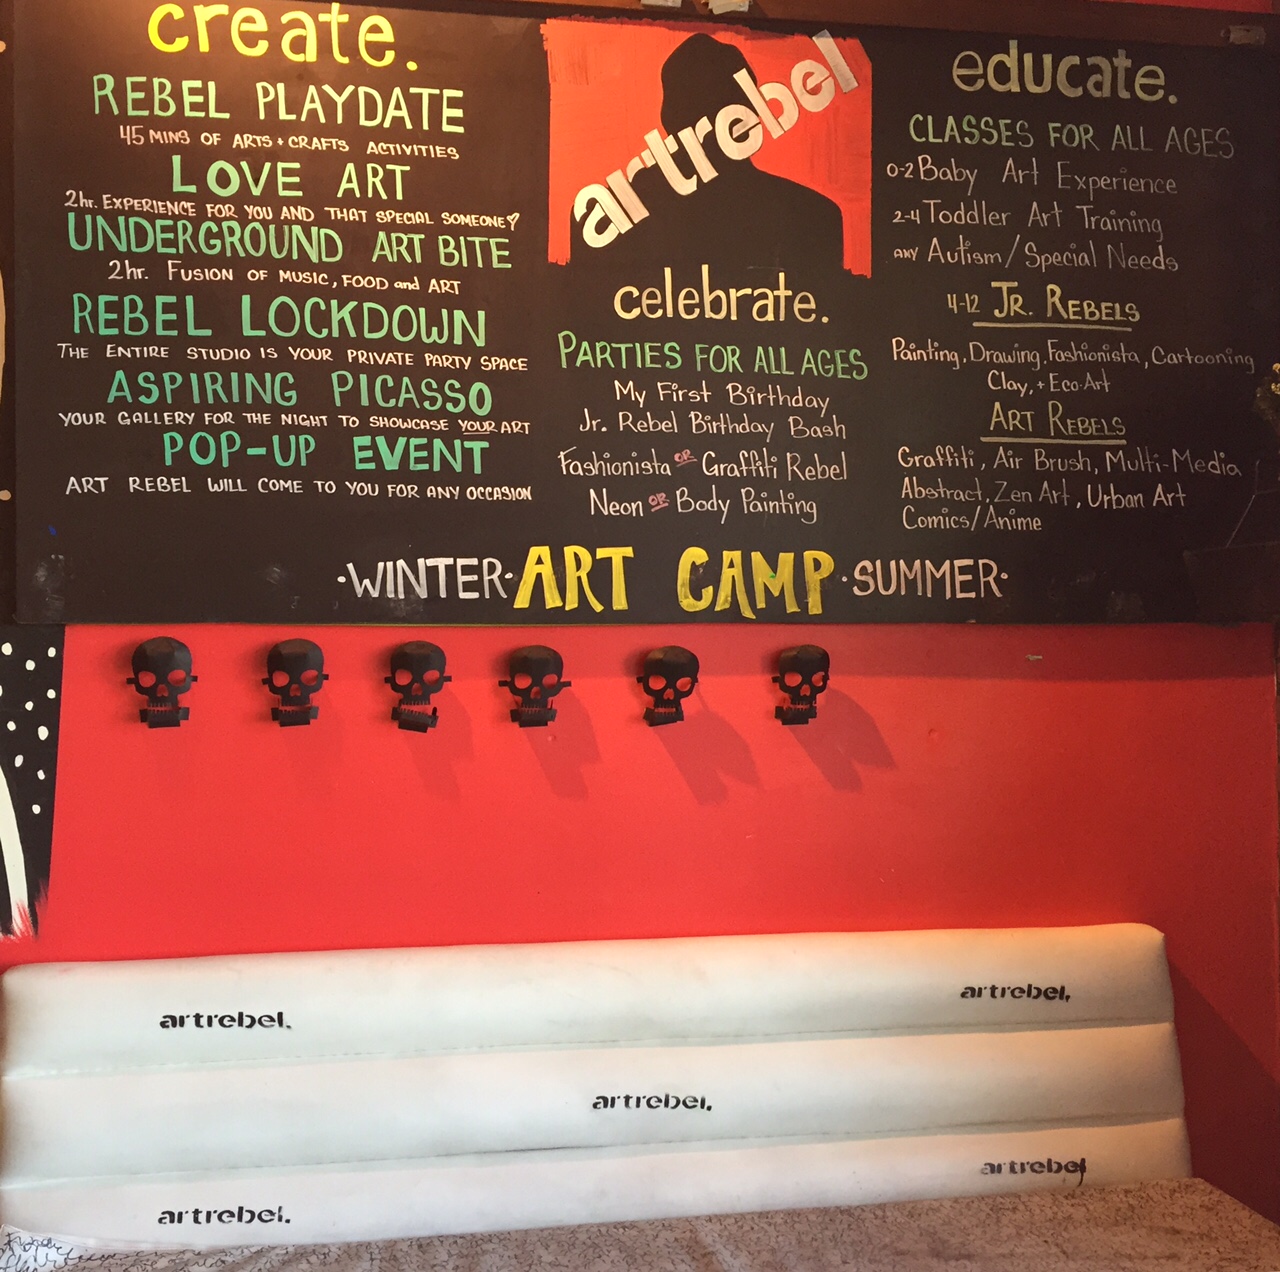 create.
REBEL PLAYDATE
45 MINS OF ARTS + CRAFTS ACTIVITIES
LOVE ART
2hr. EXPERIENCE FOR YOU AND THAT SPECIAL SOMEONE♡
UNDERGROUND ART BITE
2hr. FUSION OF MUSIC, FOOD and ART
REBEL LOCKDOWN
THE ENTIRE STUDIO IS YOUR PRIVATE PARTY SPACE
ASPIRING PICASSO
YOUR GALLERY FOR THE NIGHT TO SHOWCASE YOUR ART
POP-UP EVENT
ART REBEL WILL COME TO YOU FOR ANY OCCASION
artrebel
celebrate.
PARTIES FOR ALL AGES
My First Birthday
Jr. Rebel Birthday Bash
Fashionista OR Graffiti Rebel
Neon OR Body Painting
educate.
CLASSES FOR ALL AGES
0-2 Baby Art Experience
2-4 Toddler Art Training
any Autism/Special Needs
4-12 JR. REBELS
Painting, Drawing, Fashionista, Cartooning
Clay, + Eco-Art
ART REBELS
Graffiti, Air Brush, Multi-Media
Abstract, Zen Art, Urban Art
Comics/Anime
·WINTER·ART CAMP·SUMMER·
artrebel.
artrebel.
artrebel.
artrebel
artrebel.